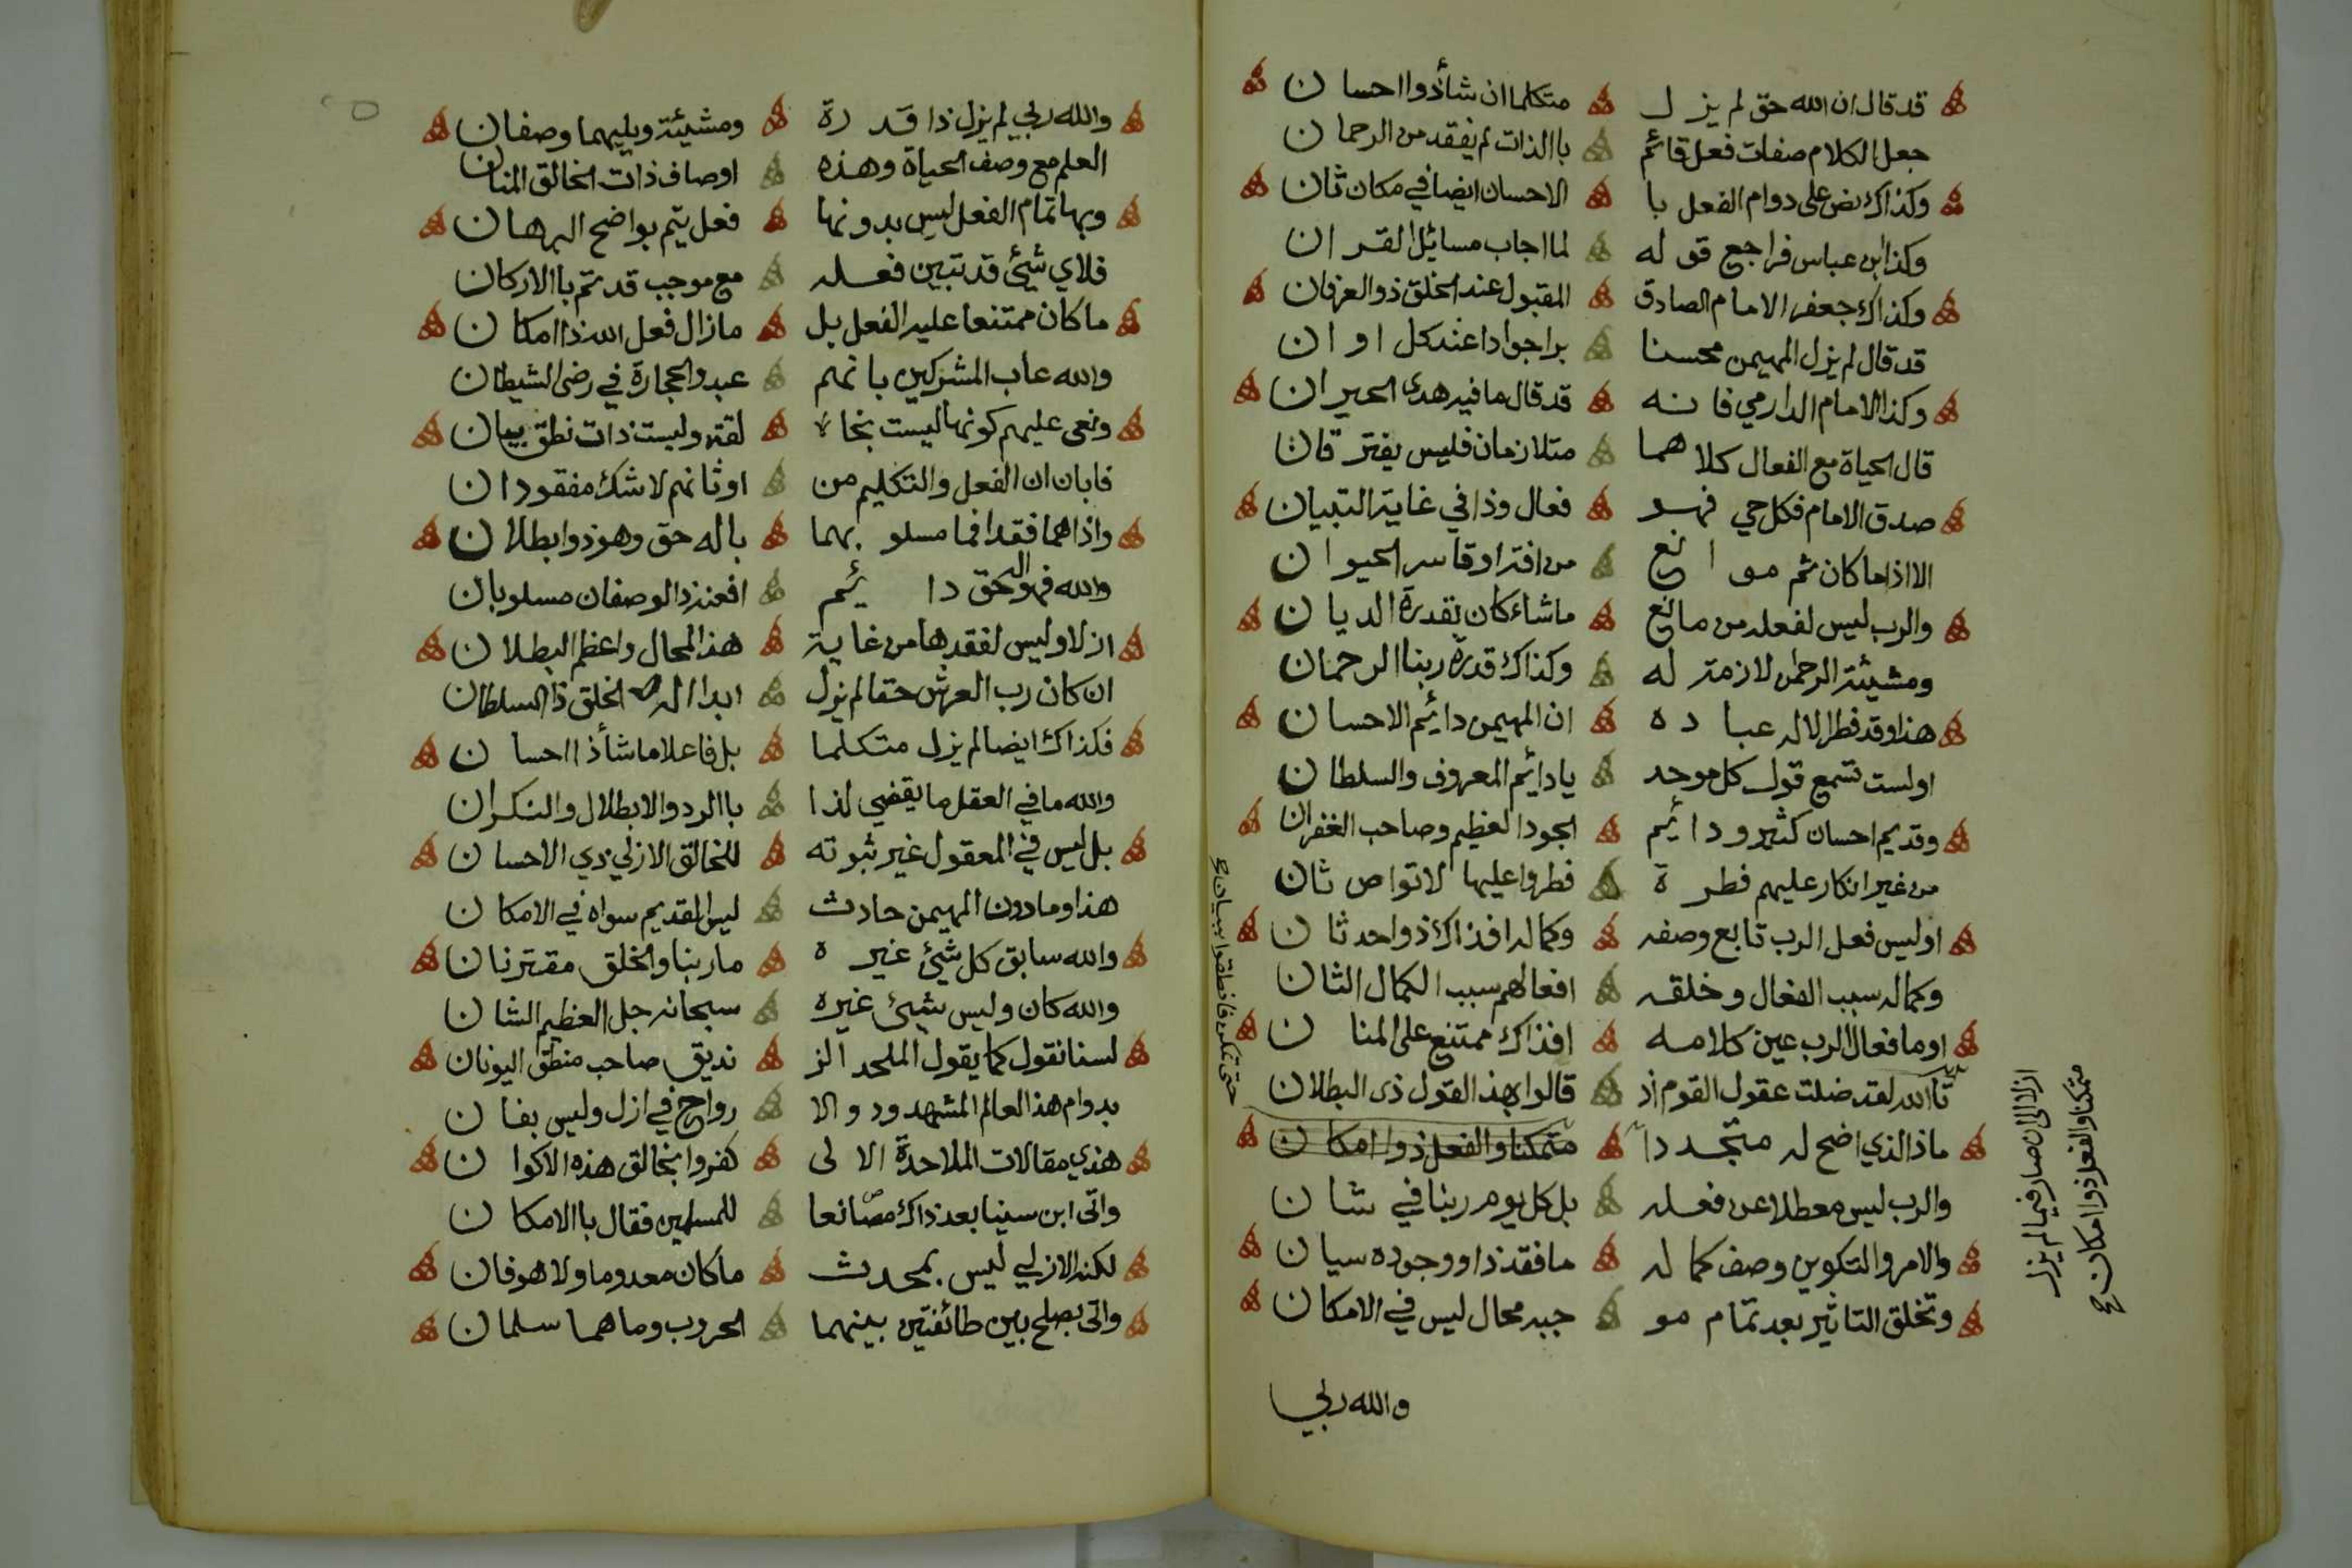 قد قال ان الله حق لم يزل متكلما ان شأ ذوا احسان
جعل الكلام صفات فعل قائم باالذات لم يفقد من الرحمان
وكذاك نص على دوام الفعل با الاحسان ايضا في مكان ثان
وكذا ابن عباس فراجع قوله لما اجاب مسائل القران
وكذاك جعفر الامام الصادق المقبول عند الخلق ذو العرفان
قد قال لم يزل المهيمن محسنا برا جوادا عند كل اوان
وكذا الامام الدارمي فانه قد قال ما فيه هدى الحيران
قال الحياة مع الفعال كلاهما متلازمان فليس يفترقان
صدق الامام فكل حي فهو فعال وذا في غاية التبيان
الا اذا ما كان ثم موانع من افة او قاسر الحيوان
والرب ليس لفعله من مانع ماشاء كان بقدرة الديان
ومشيئة الرحمن لازمة له وكذاك قدرة ربنا الرحمان
هذا وقد فطر الاله عباده ان المهيمن دائيم الاحسان
اولست تسمع قول كل موحد يا دائيم المعروف والسلطان
وقديم احسان كثير ودائيم الجود العظيم وصاحب الغفران
من غير انكار عليهم فطرة فطروا عليها لا تواص ثان
اوليس فعل الرب تابع وصفه وكماله افذاك ذو احدثان
وكماله سبب الفعال وخلقه افعالهم سبب الكمال الثان
اوما فعال الرب عين كلامه افذاك ممتنع على المنان
ازلا الى ان صار فيما لم يزل
متمكنا والفعل ذوا امكان صح
تاالله لقد ضلت عقول القوم اذ قالوا بهذ القول ذى البطلان
ماذا الذي اضح له متجددا متمكنا والفعل ذوا امكان
حتى تمكن فانطقوا ببيان صح
والرب ليس معطلا عن فعله بل كل يوم ربنا في شان
والامر والتكوين وصف كماله ما فقد ذا ووجوده سيان
وتخلق التاثير بعد تمام مو جبه محال ليس في الامكان
والله ربي
والله ربي لم يزل ذا قدرة ومشيئة ويليهما وصفان
العلم مع وصف الحياة وهذه اوصاف ذات الخالق المنان
وبها تمام الفعل ليس بدونها فعل يتم بواضح البرهان
فلاي شيئ قد تبين فعله مع موجب قد تم باالاركان
ما كان ممتنعا عليه الفعل بل مازال فعل الله ذا امكان
والله عاب المشركين بانهم عبدوا الحجارة في رضى الشيطان
ونعى عليهم كونها ليست بخا لقة وليست ذات نطق بيان
فابان ان الفعل والتكليم من اوثانهم لا شك مفقودان
واذا هما فقدا فما مسلوبهما باله حق وهو ذوا بطلان
والله فهو اله حق دائيم افعنه ذا الوصفان مسلوبان
ازلا وليس لفقدها من غاية هذ المحال واعظم البطلان
ان كان رب العرش حقا لم يزل ابدا اله الخلق ذا السلطان
فكذاك ايضا لم يزل متكلما بل فاعلا ما شأ ذا احسان
والله ما في العقل ما يقضي لذا باالرد والابطلال والنكران
بل ليس في المعقول غير ثبوته للخالق الازلي ذي الاحسان
هذا وما دون المهيمن حادث ليس القديم سواه في الامكان
والله سابق كل شيئ غيره ما ربنا والخلق مقترنان
والله كان وليس شيئ غيره سبحانه جل العظيم الشان
لسنا نقول كما يقول الملحد الز نديق صاحب منطق اليونان
بدوام هذ العالم المشهدود والا رواح في ازل وليس بفان
هذي مقالات الملاحدة الالى كفروا بخالق هذه الاكوان
واتى ابن سينا بعد ذاك مصانعا للمسلمين فقال باالامكان
لكنه الازلي ليس بمحدث ما كان معدوما ولا هو فان
واتى بصلح بين طائفتين بينهما الحروب وما هما سلمان